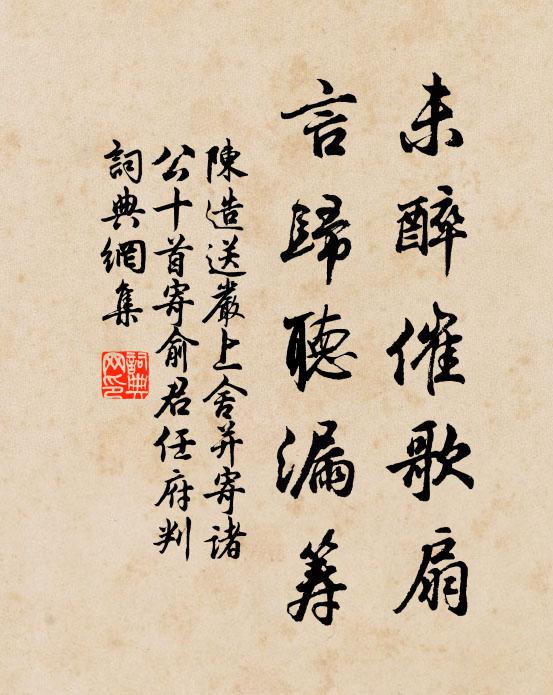 未醉催歌扇
言歸聽漏籌
陳造送嚴上舍并寄諸
公十首寄俞君任府判
詞典網集
詞典網印